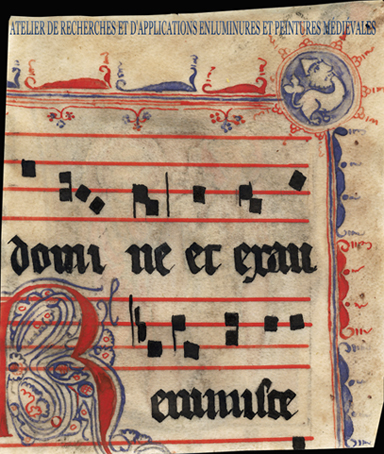 ATELIER DE RECHERCHES ET D'APPLICATIONS ENLUMINURES ET PEINTURES MÉDIÉVALES
domi ne et exau
R
eminisce